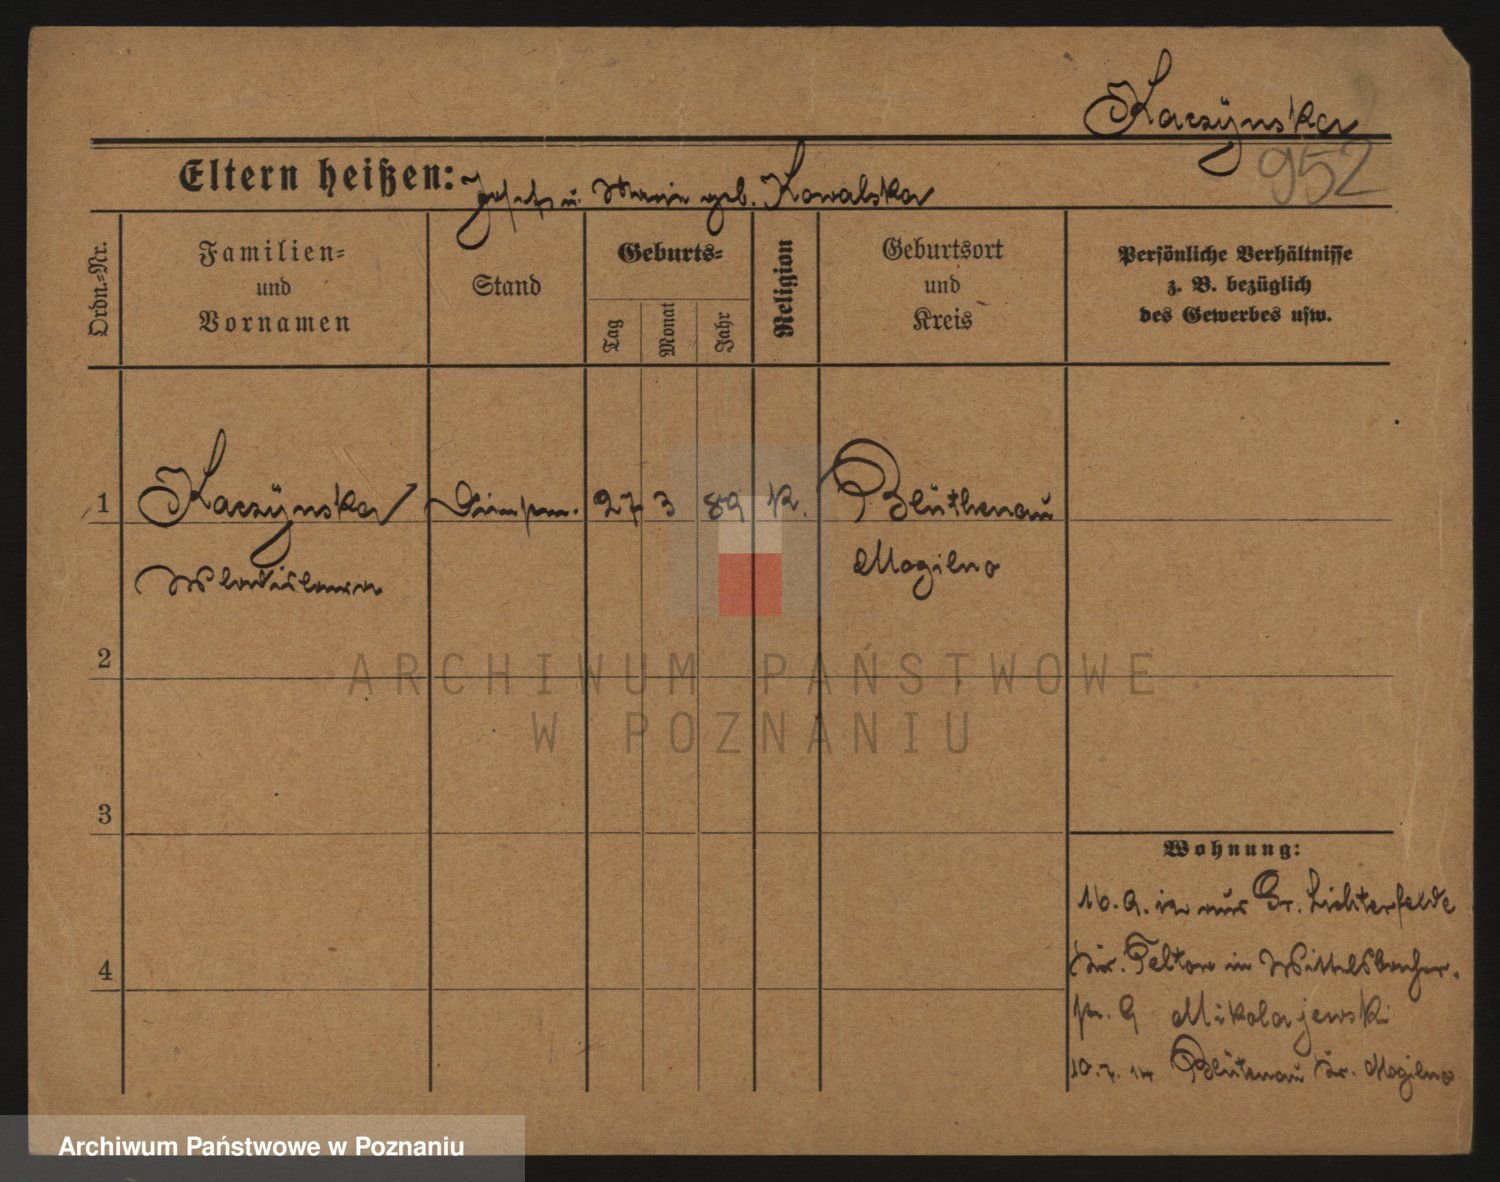 Kaczÿnska
952
Eltern heißen: Josef u. Marie geb. Kowalska
Ordn.-Nr.
Familien=
und
Vornamen
Stand
Geburts=
Tag
Monat
Jahr
Religion
Geburtsort
und
Kreis
Persönliche Verhältnisse
z. B. bezüglich
des Gewerbes usw.
1 Kaczÿnska 27 3 89 K. Blüthenau
Wladislawa Mogilno
2
ARCHIWUM PAŃSTWOWE
W POZNANIU
3
Wohnung:
16. 9. aus Gr. Lichterfelde
Kr. Teltow in Wittelsbacher-
9 Mikolajewski
4
10. 7. 14 Blütenau Kr. Mogilno
Archiwum Państwowe w Poznaniu